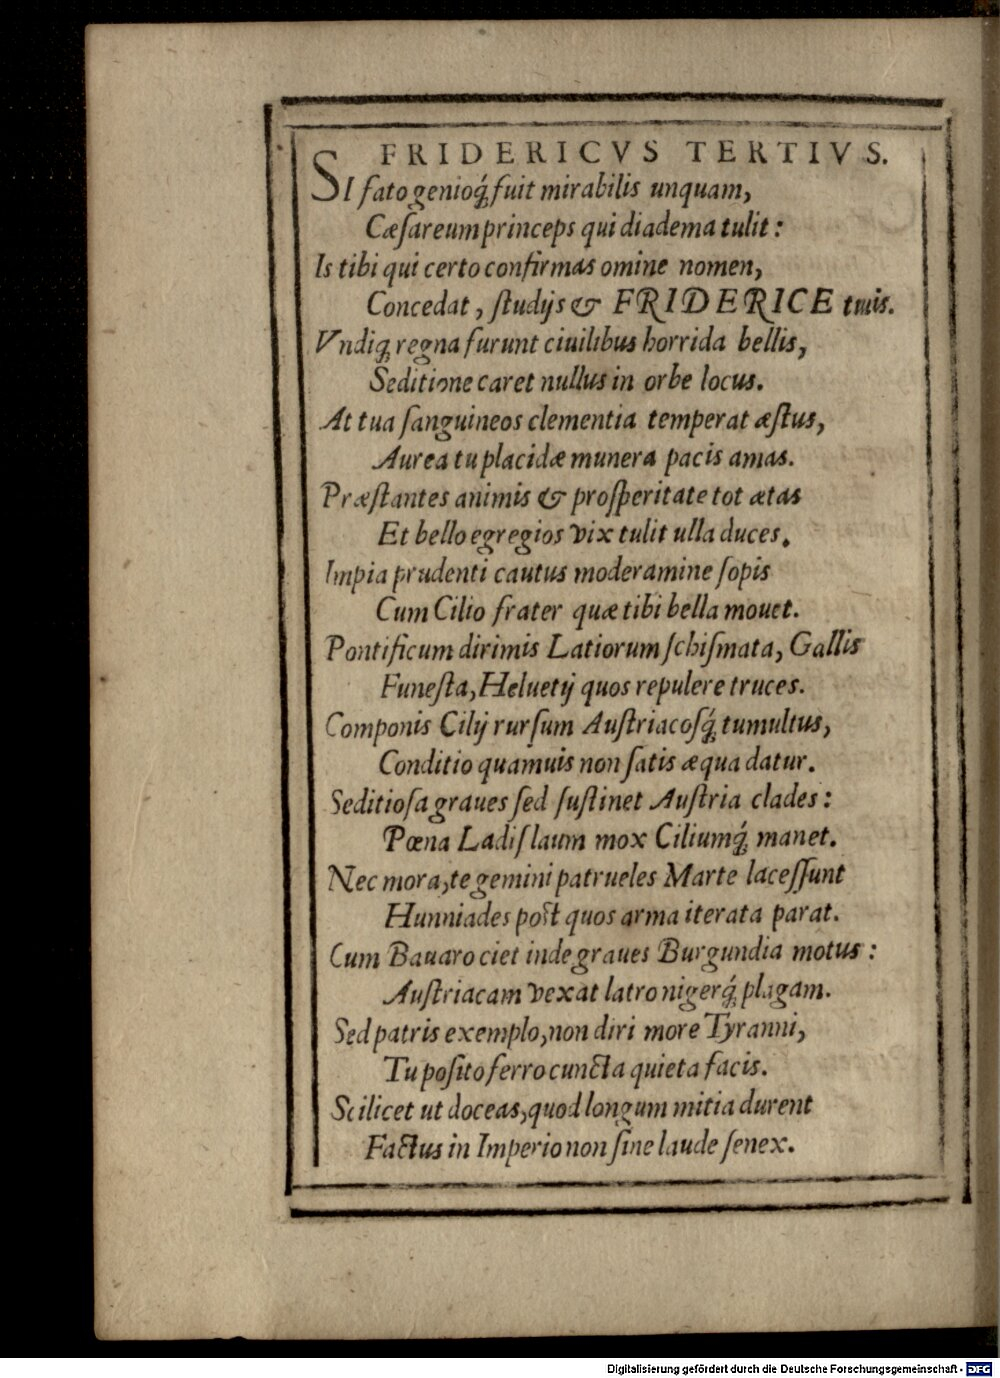 FRIDERICVS TERTIVS.
SI fato genioq́ꝫ fuit mirabilis unquam,
Cæſareum princeps qui diadema tulit:
Is tibi qui certo confirmas omine nomen,
Concedat, ſtudijs & FRIDERICE tuis.
Vndiqꝫ regna furunt ciuilibus horrida bellis,
Seditione caret nullus in orbe locus.
At tua ſanguineos clementia temperat æſtus,
Aurea tu placidæ munera pacis amas.
Præſtantes animis & proſperitate tot ætas
Et bello egregios vix tulit ulla duces.
Impia prudenti cautus moderamine ſopis
Cum Cilio frater quæ tibi bella mouet.
Pontificum dirimis Latiorum ſchiſmata, Gallis
Funeſta, Heluetij quos repulere truces.
Componis Cilij rurſum Auſtriacoſq́ꝫ tumultus,
Conditio quamuis non ſatis æqua datur.
Seditioſa graues ſed ſuſtinet Auſtria clades:
Pœna Ladiſlaum mox Ciliumq́ꝫ manet.
Nec mora, te gemini patrueles Marte laceſſunt
Hunniades poſt quos arma iterata parat.
Cum Bauaro ciet inde graues Burgundia motus:
Auſtriacam vexat latro nigerq́ꝫ plagam.
Sed patris exemplo, non diri more Tyranni,
Tu poſito ferro cuncta quieta facis.
Scilicet ut doceas, quod longum mitia durent
Factus in Imperio non ſine laude ſenex.
Digitalisierung gefördert durch die Deutsche Forschungsgemeinschaft - DFG